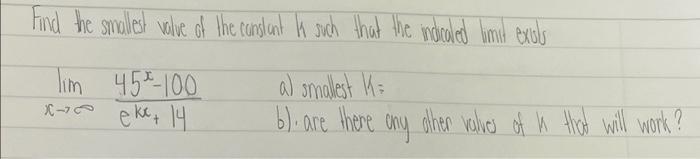 Find the smallest value of the constant k such that the indicated limit exists
lim 45^x-100 a) smallest k=
x→∞ e^kx + 14 b). are there any other values of k that will work?